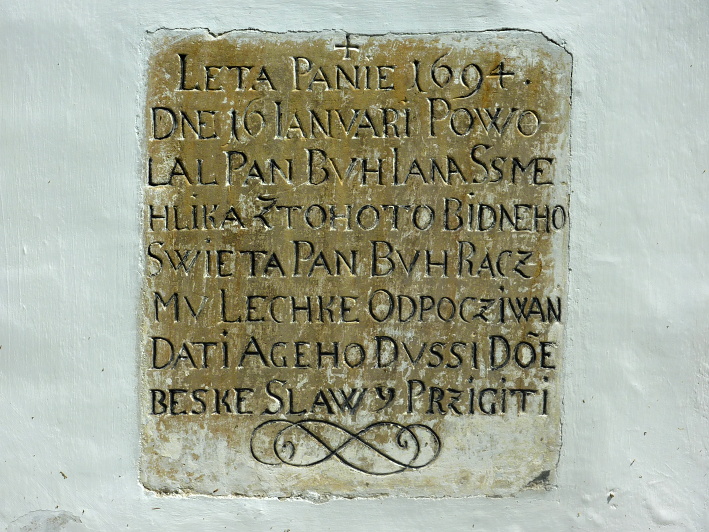 +
LETA PANIE 1694.
DNE 16 IANVARI POWO
LAL PAN BVH IANA SSME
HLIKA Z̃TOHOTO BIDNEHO
SWIETA PAN BVH RACZ
MV LECHKE ODPOCZIWAN
DATI AGEHO DVSSI DO NE
BESKE SLAWY PRZIGITI